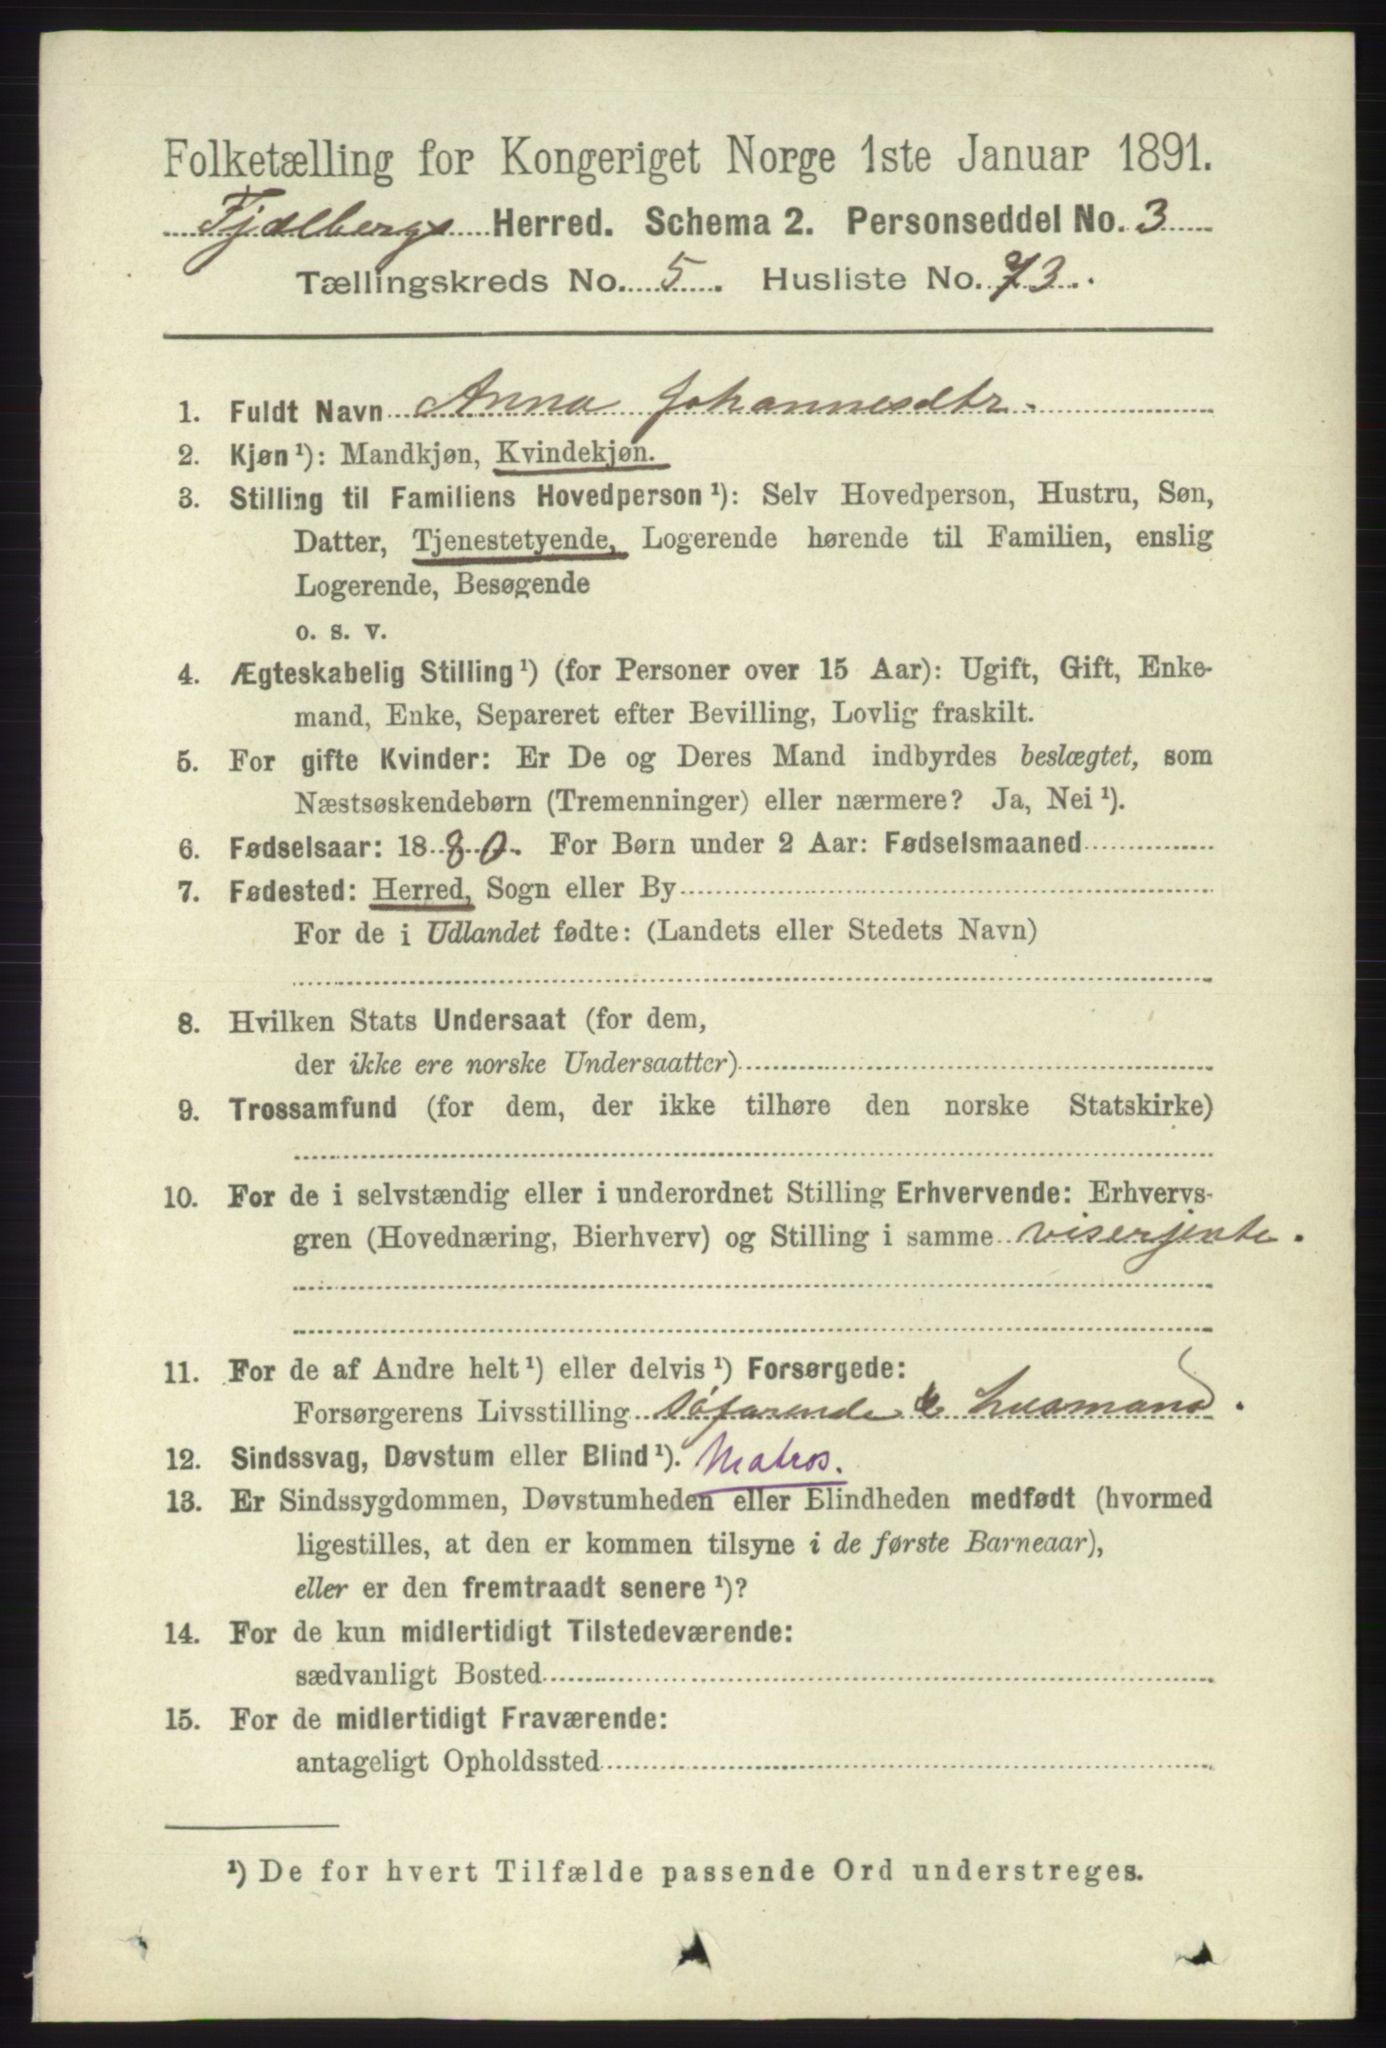 Folketælling for Kongeriget Norge 1ste Januar 1891.
Fjælbergs Herred. Schema 2. Personseddel No. 3
Tællingskreds No. 5. Husliste No. 73.
1. Fuldt Navn Anna Johannesdtr.
2. Kjøn¹): Mandkjøn, Kvindekjøn.
3. Stilling til Familiens Hovedperson¹): Selv Hovedperson, Hustru, Søn,
Datter, Tjenestetyende, Logerende hørende til Familien, enslig
Logerende, Besøgende
o. s. v.
4. Ægteskabelig Stilling¹) (for Personer over 15 Aar): Ugift, Gift, Enke-
mand, Enke, Separeret efter Bevilling, Lovlig fraskilt.
5. For gifte Kvinder: Er De og Deres Mand indbyrdes beslægtet, som
Næstsøskendebørn (Tremenninger) eller nærmere? Ja, Nei¹).
6. Fødselsaar: 1880. For Børn under 2 Aar: Fødselsmaaned
7. Fødested: Herred, Sogn eller By
For de i Udlandet fødte: (Landets eller Stedets Navn)
8. Hvilken Stats Undersaat (for dem,
der ikke ere norske Undersaatter)
9. Trossamfund (for dem, der ikke tilhøre den norske Statskirke)
10. For de i selvstændig eller i underordnet Stilling Erhvervende: Erhvervs-
gren (Hovednæring, Bierhverv) og Stilling i samme viserjente.
11. For de af Andre helt¹) eller delvis¹) Forsørgede:
Forsørgerens Livsstilling søfarende
12. Sindssvag, Døvstum eller Blind¹). Matros.
13. Er Sindssygdommen, Døvstumheden eller Blindheden medfødt (hvormed
ligestilles, at den er kommen tilsyne i de første Barneaar),
eller er den fremtraadt senere¹)?
14. For de kun midlertidigt Tilstedeværende:
sædvanligt Bosted
15. For de midlertidigt Fraværende:
antageligt Opholdssted
¹) De for hvert Tilfælde passende Ord understreges.